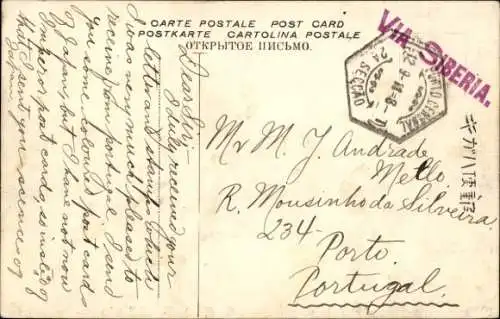 CARTE POSTALE POST CARD
POSTKARTE CARTOLINA POSTALE
ОТКРЫТОЕ ПИСЬМО.
VIA SIBERIA.
PORTO CENTRAL
2A SECÇÃO
Dear Sir:-
I duly received your
letter and stamps which
I was very much pleased to
receive from Portugal. I send
you some coloured post cards
of Japan, but I have not now
Emperor's post cards, so instead of
that I sent you scence of
Mr M. J. Andrade
Mello.
R. Mousinho da Silveira
234-
Porto
Portugal.
キガハ便重